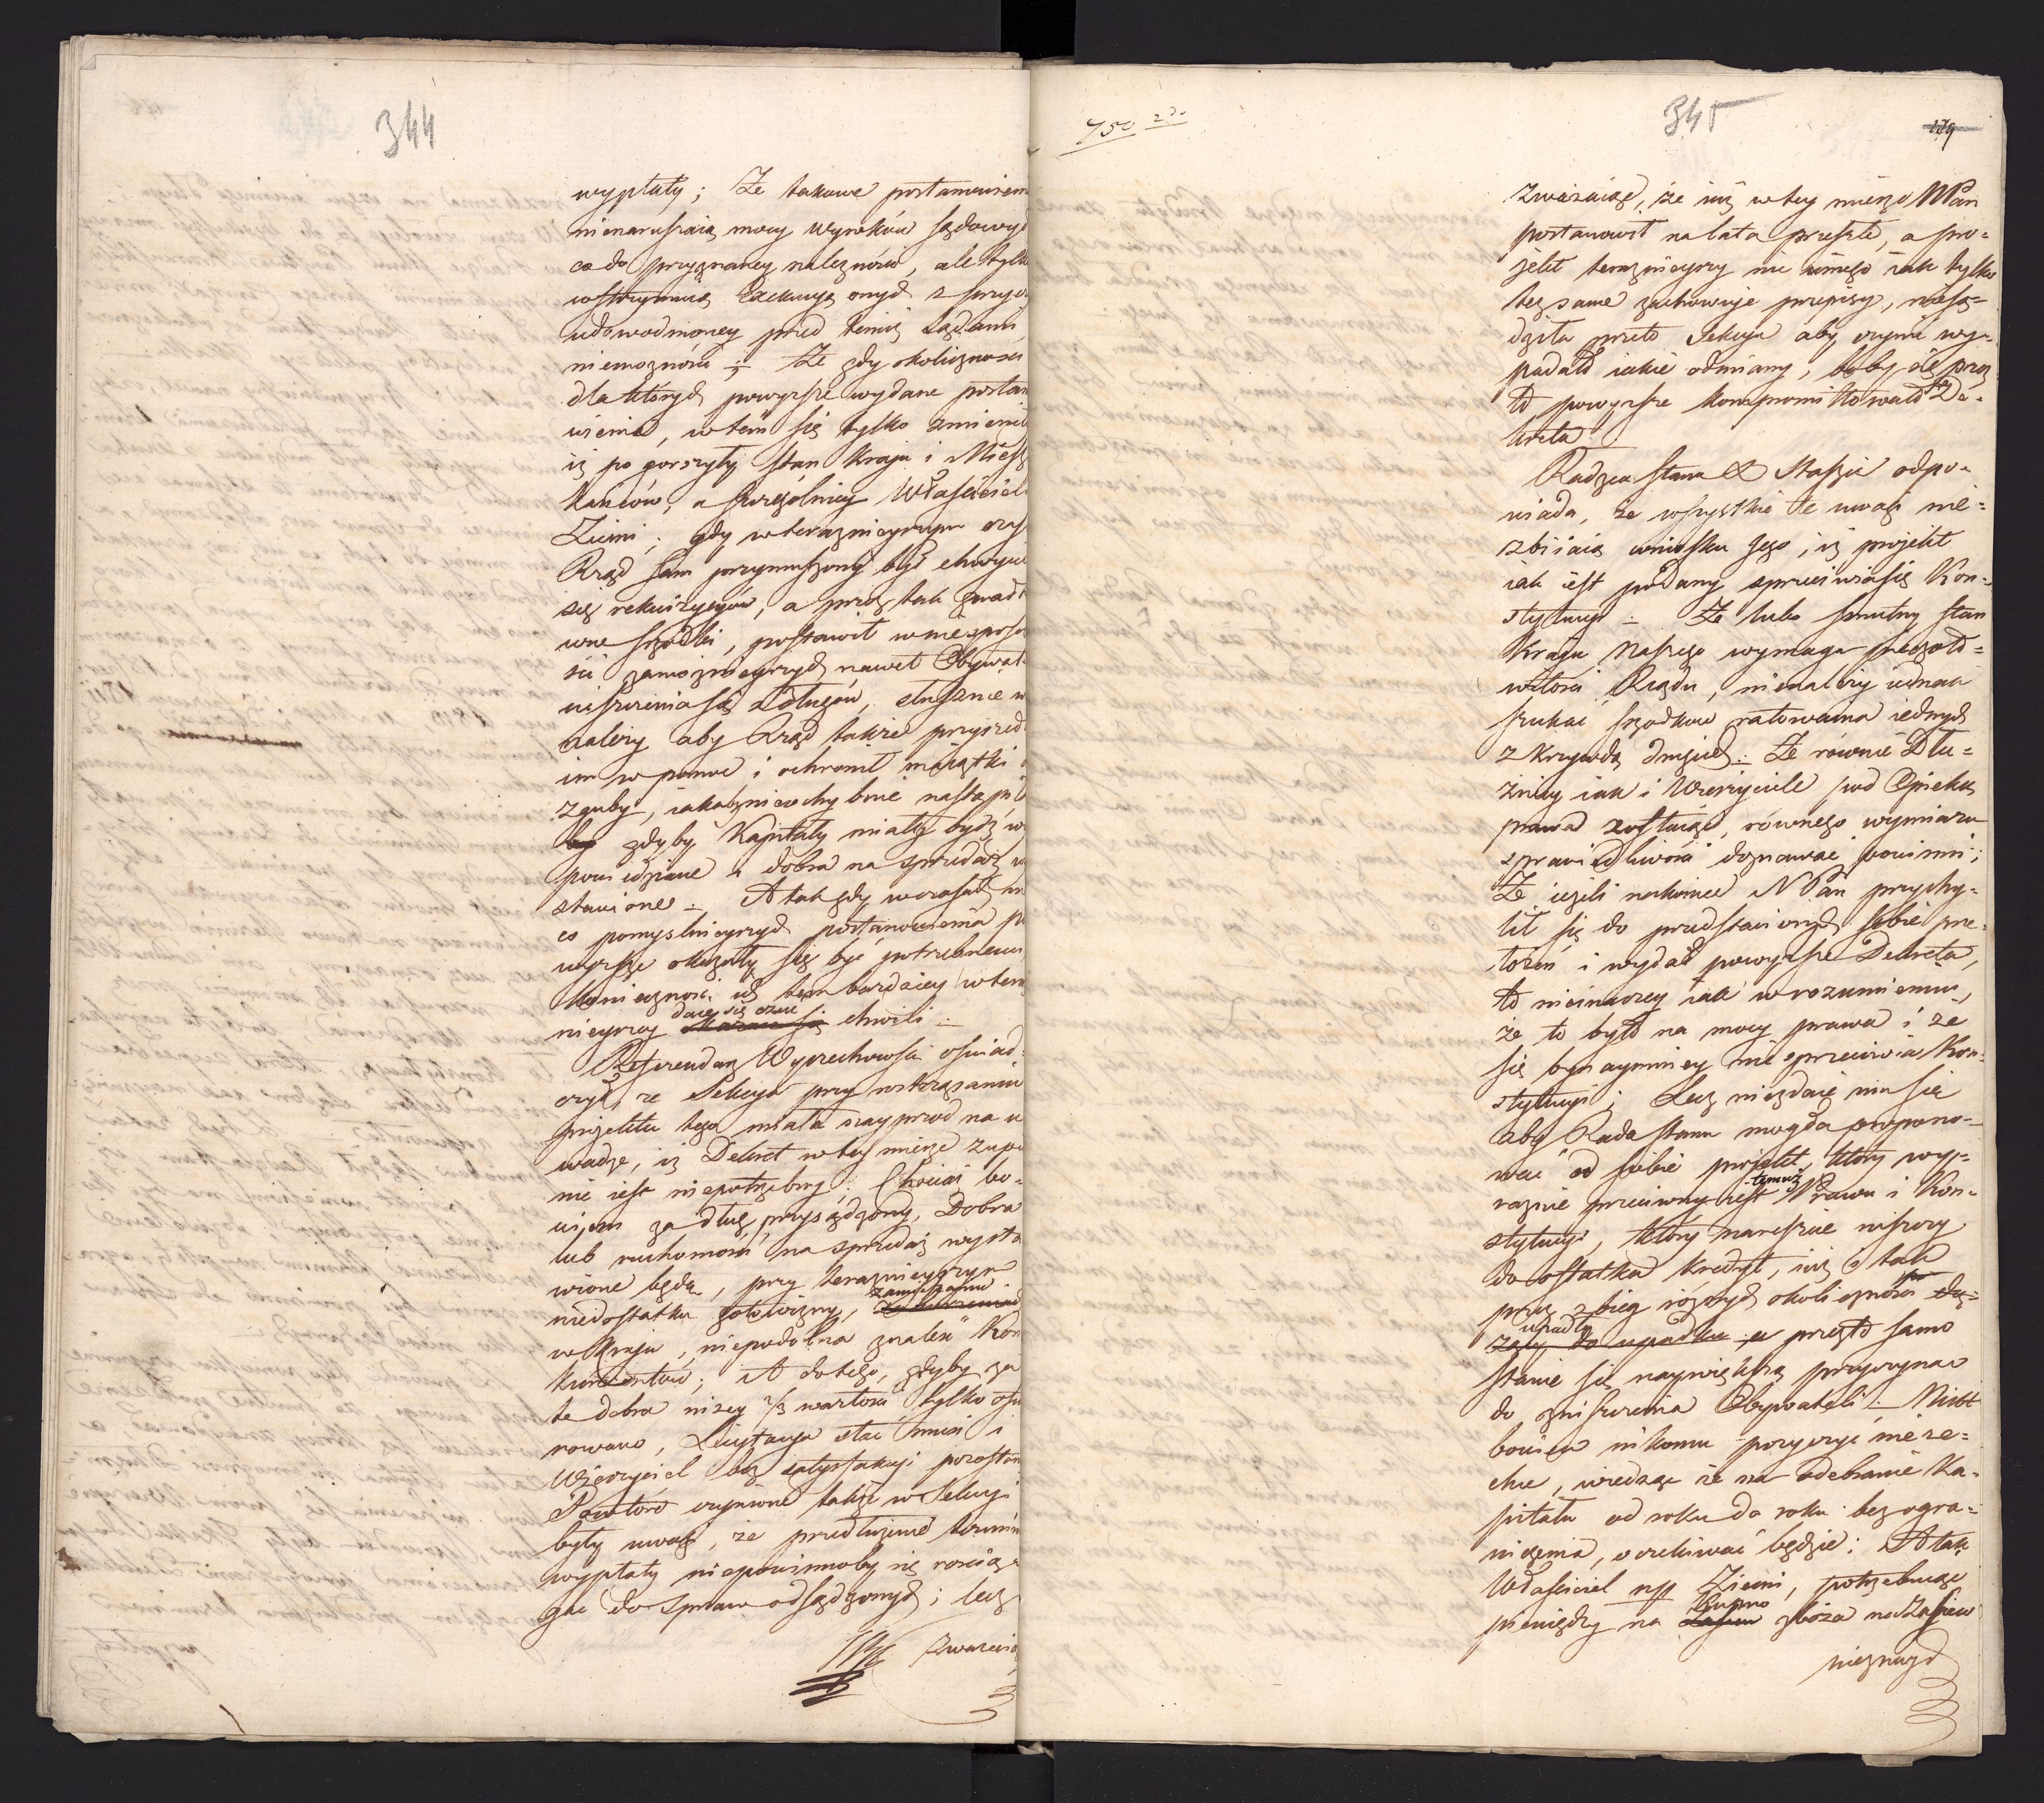 344
wypłaty; Że takowe postanowien
nienaruszaią mocy wyroków sądowyc
co do przyznaney należnośći, ale tylko
wstrzymuią Exekucyą onych z przycz
udowodnioney przed temiż Sądami
niemożnośći ÷ Że gdy okolicznosci
dla których powyższe wydane postan
wienia, w tem się tylko zmienił
iż pogorszyły stan Kraju i Miesz
kańców, a szczególniey Właścićiel
Ziemi; gdy w teraznieyszym czas
Rząd sam przymuszony był chwycic
się rekwizycyów, a przez tak gwałt
wne srzodki, postawił w niesposo
ści zamoznieyszych nawet Obywat
uiszczenia się z długów, słusznie
należy aby Rząd także przyszedł
im w pomoc i ochronił maiątki
zguby, iakaby niechybnie nastąpiła
gdyby Kapitały miały bydź wy
powiedziane a dobra na sprzedaż w
stawione ÷ A tak gdy w czasach
co pomyslnieyszych postanowienia po
wyższe okazały się być potrzebnemi
konieczność ich tem bardziey w teraz
nieyszey daie się czuć chwili ÷
Referendarz Wyczechowski oświad=
czył, że Sekcya przy roztrząsaniu
projektu tego miała nayprzod na u
wadze, iż Dekret w tey mierze zupe
nie iest niepotrzebny: Chociaż bo=
wiem za dług przysądzony, Dobra
lub ruchomośći na sprzedaż wysta
wione będą, przy teraznieyszym
niedostatku gotowizny, zamieszaniu
w Kraju, niepodobna znaleść Kon
kurentów; A do tego, gdyby za
te dobra niżey 2/3 wartości tylko ofia
rowano, Licytacya stać musi i
Wierzyciel bez satysfakcyi pozostan
Powtóre czynione także w Sekcyi
były uwagi, że przedłużenie terminu
wypłaty niepowinnoby się roscią=
gać do spraw odsądzonych; lecz
zważaiąc
750
345
179
Zważaiąc, że iuż w tey mierze NPan
postanowił na lata przeszłe, a pro=
jekt teraznieyszy nic innego iak tylko
też same zachowuie przepisy, niesą=
dziła przeto Sekcya aby czynić wy=
padało iakie odmiany, boby się przez
to powyższe kompromittowało De=
kreta
Radzca Stanu X Staszic odpo=
wiada, że wszystkie te uwagi nie=
zbiiaią wniosku Jego, iż projekt
iak iest podany sprzeciwia się Kon=
stytucyi ÷ Że lubo smutny stan
Kraju Naszego wymaga pieczoło=
witości Rządu, nienależy iednak
szukać srzodków ratowania iednych
z krzywdą drugich ÷ Że równie Dłu=
żnicy iak i Wierzyciele pod Opieką
prawa zostaiąc, równego wymiaru
sprawiedliwości doznawać powinni;
Że ieżeli nakoniec NPan przychy=
lił się do przedstawionych sobie prze=
łożeń i wydał powyższe Dekreta,
to nieinaczey iak w rozumieniu,
że to było na mocy prawa i że
się bynaymniey nie sprzeciwia Kon=
stytucyi; Lecz niezdaie mu się
aby Rada Stanu mogła propono=
wać od siebie projekt, który wy=
raznie przeciwny iest temuż Prawu i Kon=
stytucyi, który nareszcie niszczy
do ostatka kredyt, iuż i tak
przez zbieg rożnych okoliczności
upadły a przezto samo
stanie się naywiększą przyczyną
do zniszczenia Obywateli ÷ Nikt
bowiem nikomu pożyczyć nieze=
chce, wiedząc że na odebranie Ka=
pitału od roku do roku bez ogra=
niczenia, oczekiwać będzie: A tak
Właściciel np Ziemi, potrzebuiąc
pieniędzy na kupno zboża na zasiew
nieznayd